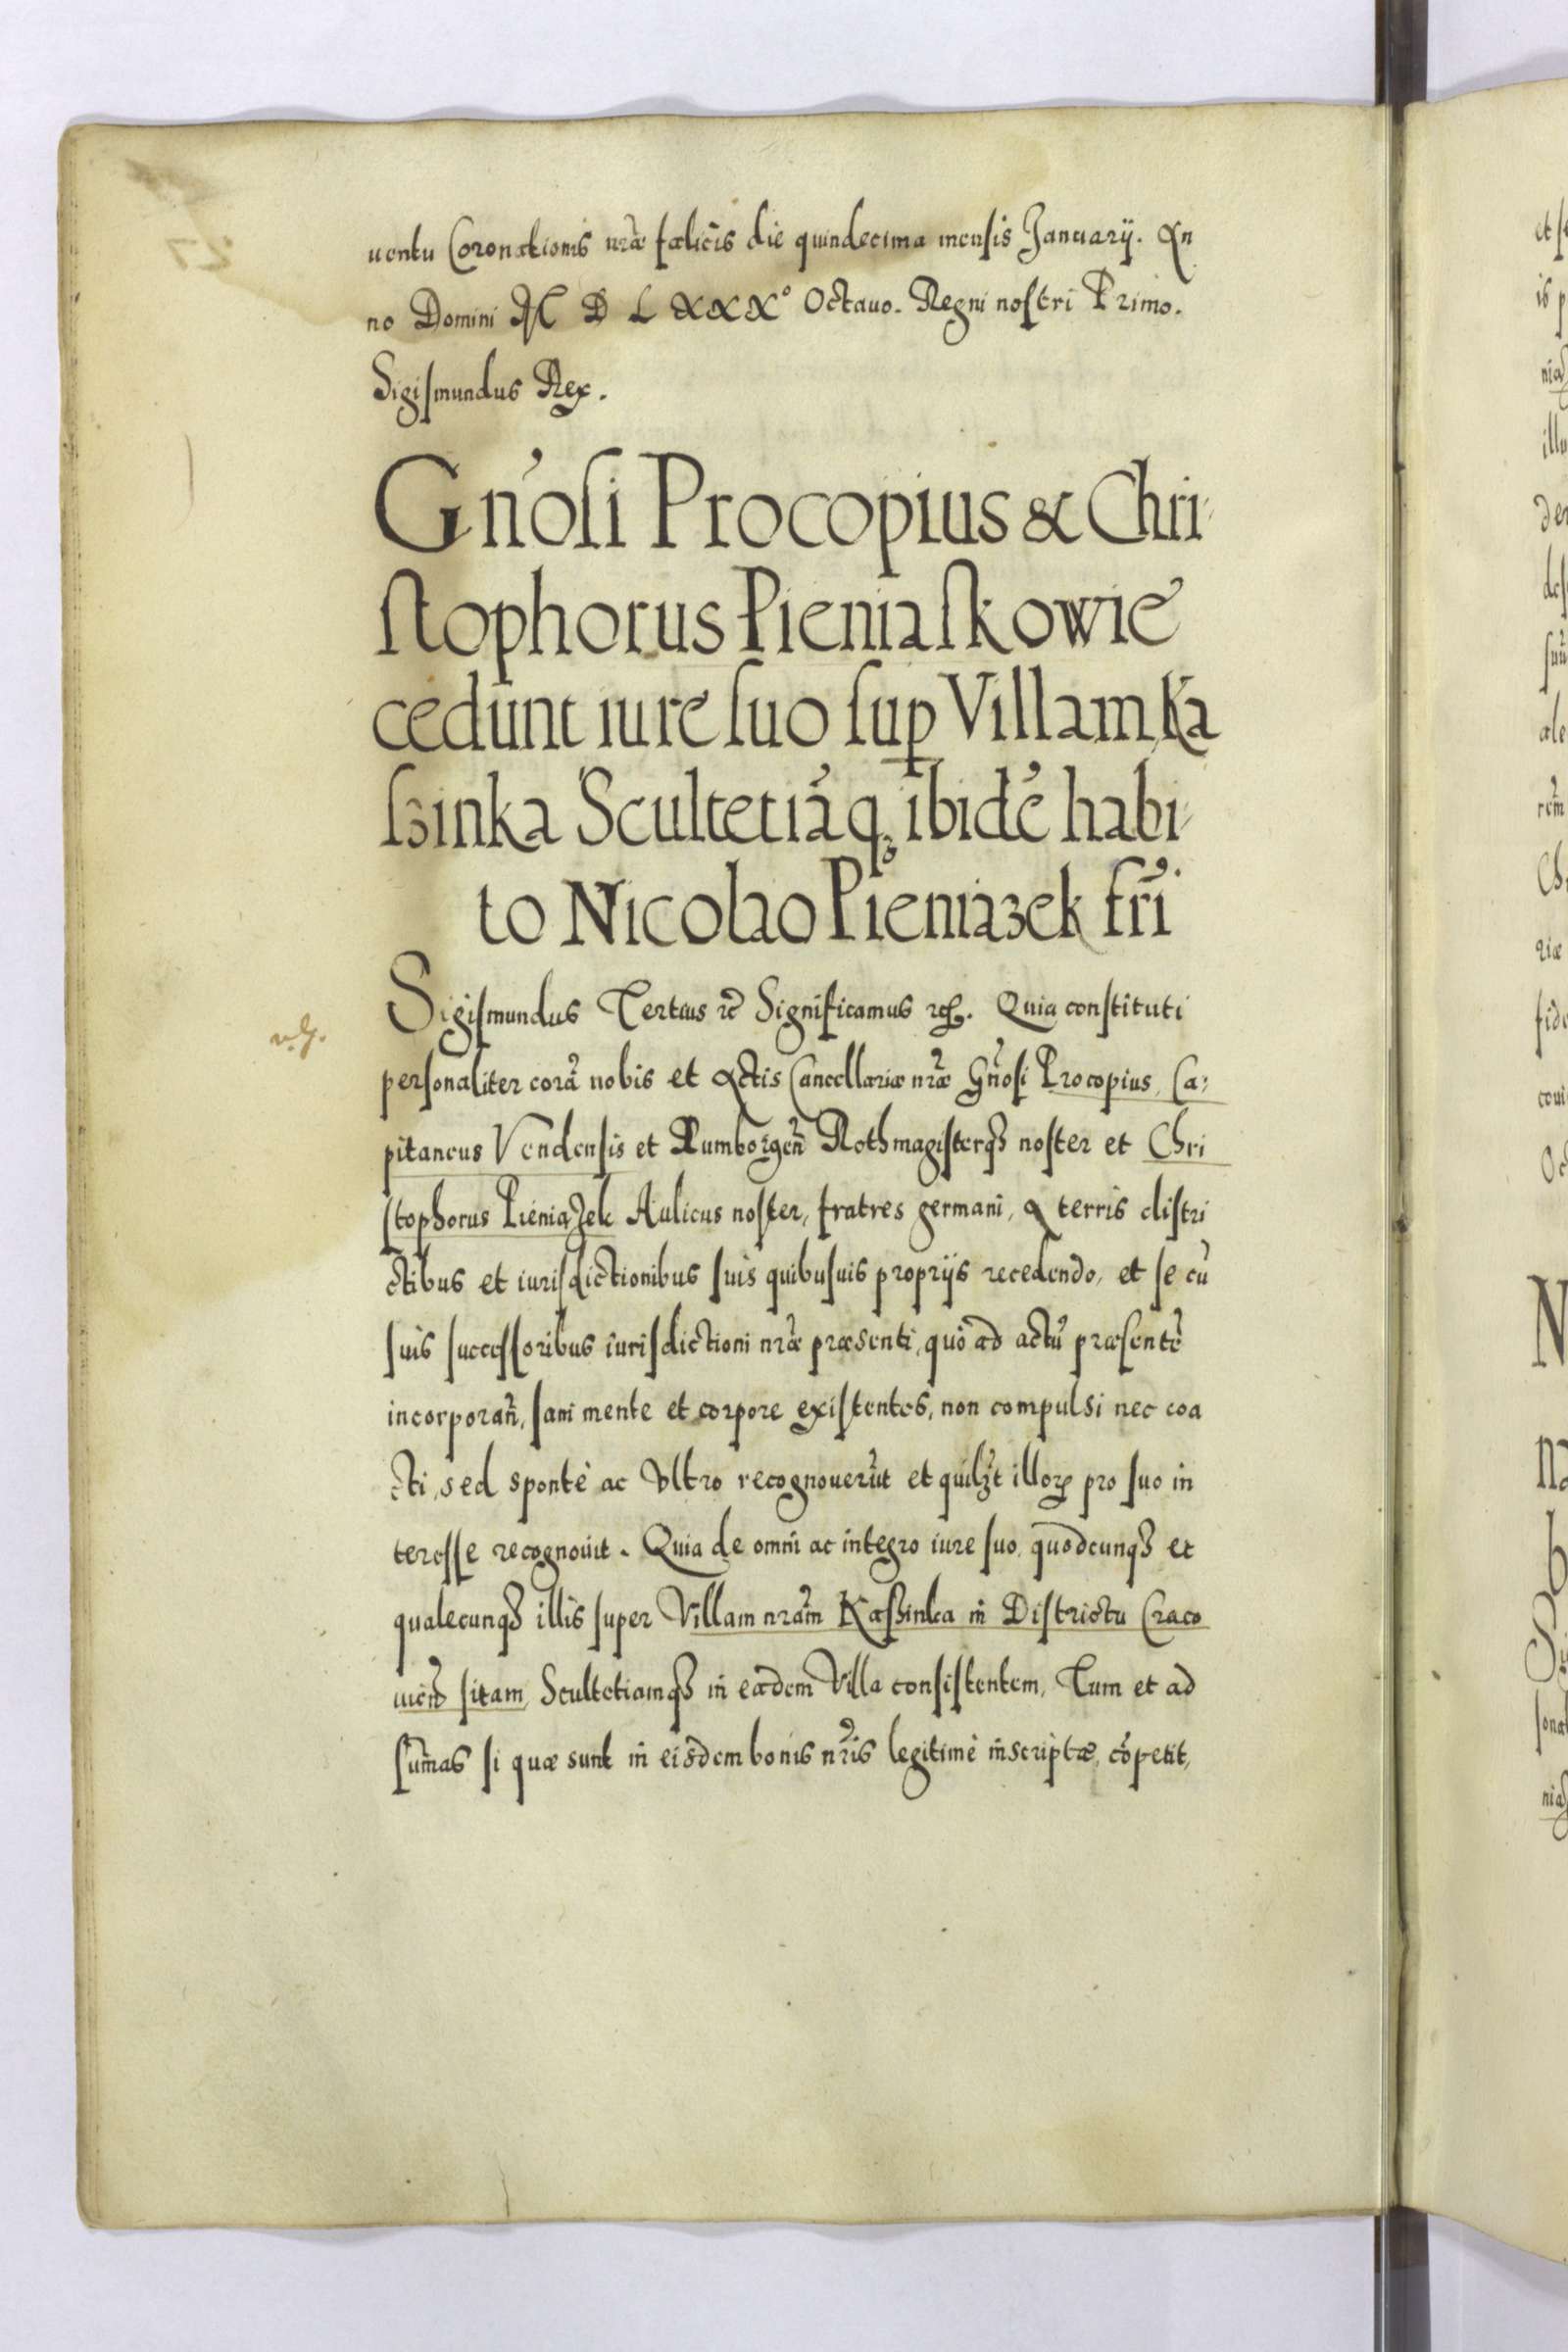 uentu Coronationis nr̃æ fœlicis die quindecima mensis Januarij. An
no Domini M D L XXX° Octauo. Regni nostri Primo.
Sigismundus Rex.
Gn̓osi Procopius & Chri
stophorus Pieniaskowie
cedunt iure suo sup̱ Villam Ka
sʒinka Scultetiãqꝫ ibidẽ habi
to Nicolao Pieniazek fr̃i
Sigismundus Tertius rc̃ Significamus rc̃. Quia constituti
personaliter corã nobis et Actis Cancellariæ nr̃æ Gñosi Procopius Ca:
pitaneus Vendensis et Rumborgeñ Rothmagisterqꝫ noster et Chri
stophorus Pieniazek Aulicus noster, fratres germani, A terris distri
ctibus et iurisdictionibus suis quibusuis proprijs recedendo, et se cũ
suis successoribus iurisdictioni nr̃æ præsenti, quò ad actũ præsentẽ
incorporañ, sani mente et corpore existentes, non compulsi nec coa
cti, sed spontè ac Vltro recognouerũt et quilꝫt illoꝝ pro suo in
teresse recognouit. Quia de omni ac integro iure suo, quodcunqꝫ et
qualecunqꝫ illis super Villam nr̃am Kasʒinka in Districtu Craco
uieñ sitam, Scultetiamqꝫ in eadem Villa consistentem, Tum et ad
sum̃as si quæ sunt in eisdem bonis nr̃is legitimè inscriptæ, cõpetit,